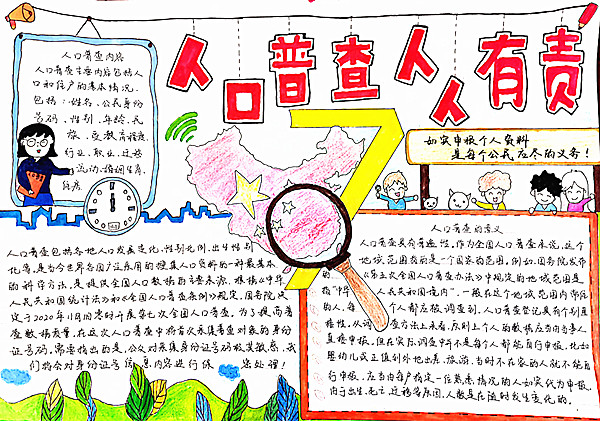 人口普查人人有责
7
人口普查内容
人口普查主要内容包括人
口和住户的基本情况,
包括:姓名、公民身份
号码、性别、年龄、民
族、受教育程度、
行业、职业、迁移
流动、婚姻生育、
死亡
如实申报个人资料
是每个公民应尽的义务!
人口普查包括各地人口发展变化,性别比例,出生性别
比等,是当今世界各国广泛采用的搜集人口资料的一种最基本
的科学方法,是提供全国人口数据的主要来源。根据《中华
人民共和国统计法》和《全国人口普查条例》规定,国务院决
定于2020年11月1日零时开展第七次全国人口普查。为了提高普
查数据质量,在这次人口普查中将首次采集普查对象的身份
证号码,需要指出的是,公众对采集身份证号码较其敏感,我
们将会对身份证号信息内容进行保 密处理!
人口普查的意义
人口普查具有普遍性,作为全国人口普查来说,这个
地域范围表的是一个国家的范围,例如:国务院发布
《第五次全国人口普查办法》中规定的地域范围是
"中华 人民共和国境内",一般在这个地域范围内居住
的人,每 个人都应被调查到,人口普查登记具有个别直
接性,从调 查方法上来看,原则上个人的数据应当由当事人
直接申报,但在实际调查中并不是每个人都能自行申报,比如
婴幼儿或正值到外地出差、旅游,当时不在家的人就不能自
行申报,应当由每户指定一位熟悉情况的人如实代为申报。
由于出生,死亡,迁移等原因,人数是在随时发生变化的。